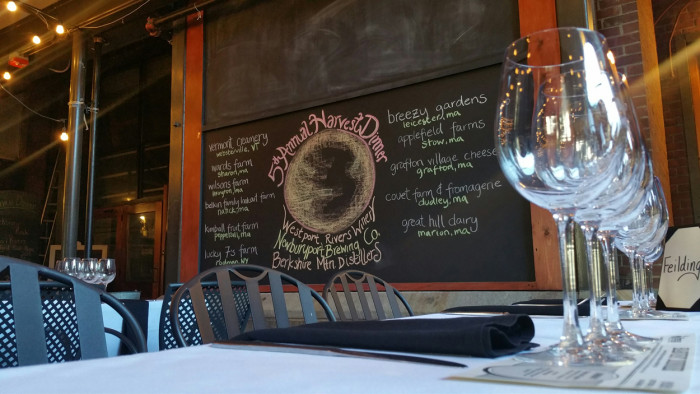 5th Annual Harvest Dinner
Westport Rivers Winery
Newburyport Brewing Co.
Berkshire Mtn. Distillers
vermont creamery
websterville, VT
wards farm
sharon, ma
wilsons farm
lexington, ma
natick, ma
kimball fruit farm
pepperell, ma
lucky 7s farm
rodman, NY
breezy gardens
leicester, ma
applefield farms
stow, ma
grafton village cheese
grafton, ma
covet farm & fromagerie
dudley, ma
great hill dairy
marion, ma
Feilding